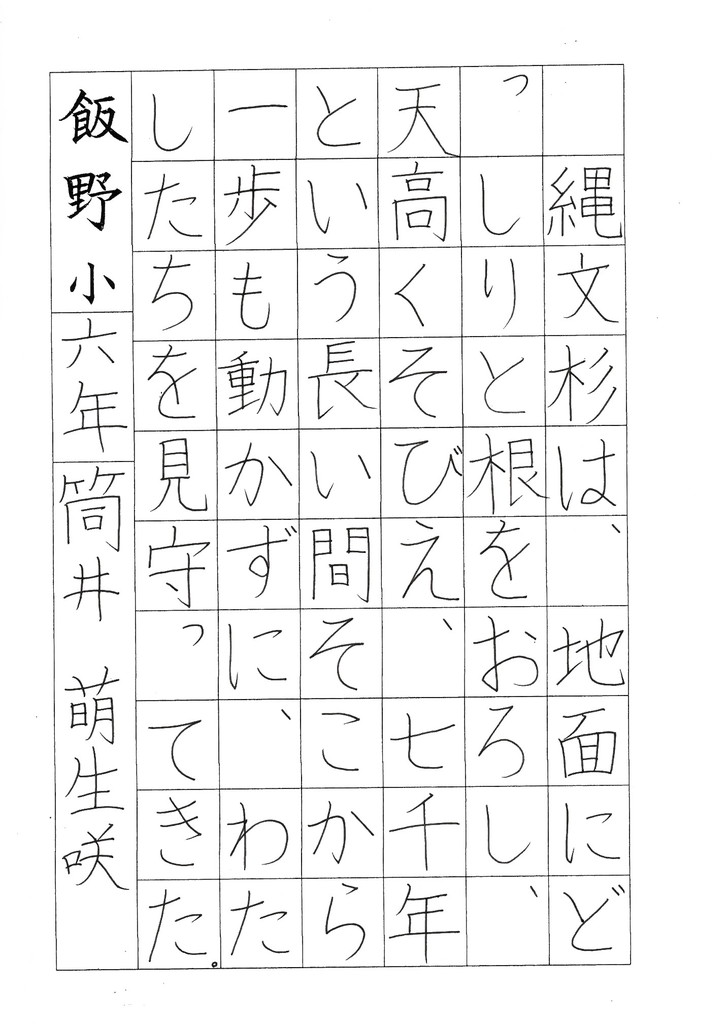 縄文杉は、地面にど
っしりと根をおろし、
天高くそびえ、七千年
という長い間そこから
一歩も動かずに、わた
したちを見守ってきた。
飯野小六年筒井 萌生咲